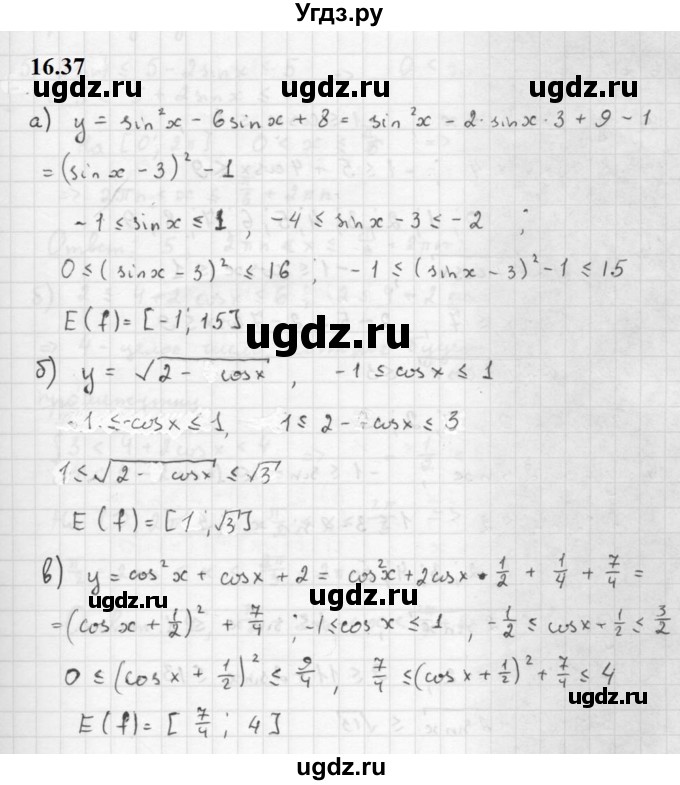 Угдз.ру
16.37
ugdz.ru ugdz.ru ugdz.ru
а) y = sin²x - 6sinx + 8 = sin²x - 2·sinx·3 + 9 - 1
= (sinx - 3)² - 1
-1 ≤ sinx ≤ 1 ; -4 ≤ sinx - 3 ≤ -2 ;
0 ≤ (sinx - 3)² ≤ 16 ; -1 ≤ (sinx - 3)² - 1 ≤ 15
E(f) = [-1; 15]
ugdz.ru
б) y = √2 - cosx , -1 ≤ cosx ≤ 1
-1 ≤ -cosx ≤ 1, 1 ≤ 2 - cosx ≤ 3
1 ≤ √2 - cosx ≤ √3
E(f) = [1; √3]
ugdz.ru ugdz.ru
в) y = cos²x + cosx + 2 = cos²x + 2cosx · 1/2 + 1/4 + 7/4 =
ugdz.ru
= (cosx + 1/2)² + 7/4 ; -1 ≤ cosx ≤ 1 , -1/2 ≤ cosx + 1/2 ≤ 3/2
0 ≤ (cosx + 1/2)² ≤ 9/4 , 7/4 ≤ (cosx + 1/2)² + 7/4 ≤ 4
E(f) = [7/4 ; 4]
ugdz.ru ugdz.ru
ugdz.ru